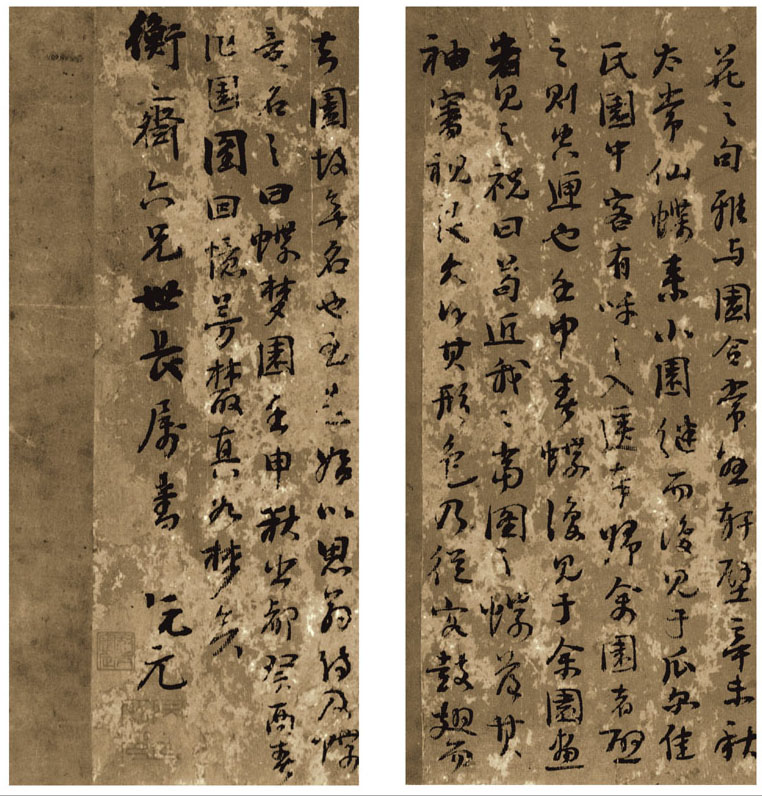 花之句雅与園合常懸軒壁辛未秋
太常仙蝶来小園继而復見于瓜尔佳
氏園中客有呼之入匣奉歸余園者啓
之則空匣也壬申春蝶復見于余園畫
者見之祝曰苟近我〻當圖之蝶落其
袖審視良久得其形色乃從容鼓翅而
去園故無名也至是始以思翁诗及蝶
意名之曰蝶梦園壬申秋出都癸酉春
作園圖回憶芳叢真如梦矣
衡之齋六兄世長属書 阮元